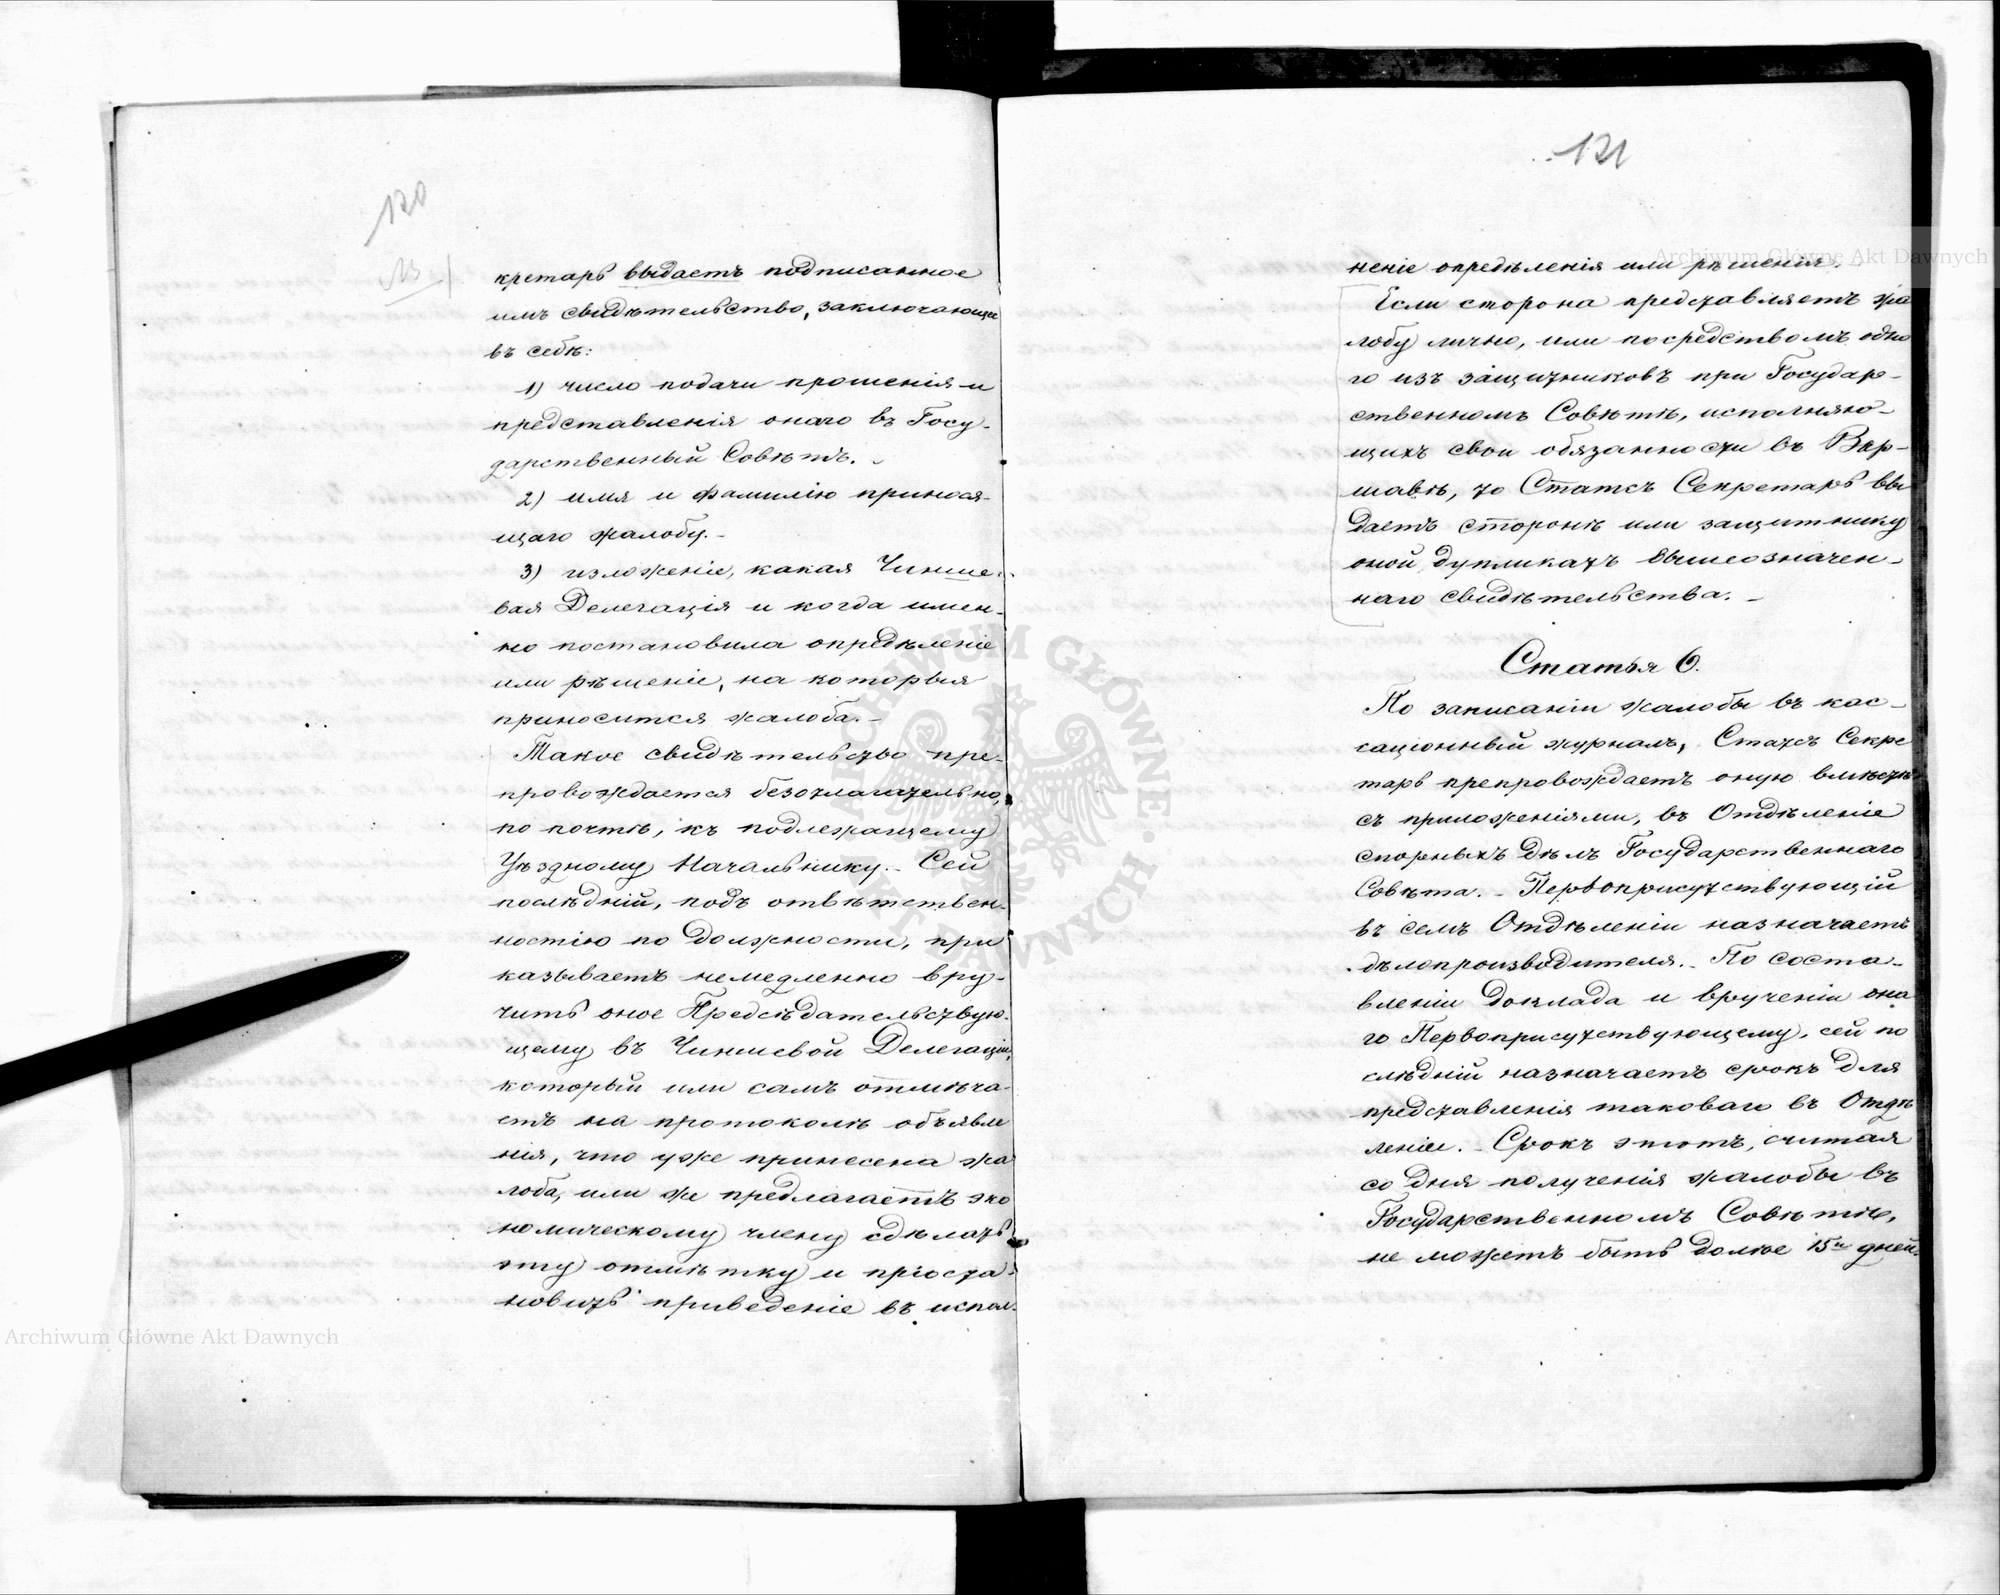 120
кретарь выдаетъ подписанное
имъ свидѣтельство, заключающее
въ себѣ:
1) число подачи прошенія и
представленія онаго въ Госу-
дарственный Совѣтъ.
2) имя и фамилію принося-
щаго жалобу.-
3) изложеніе, какая Чинше-
вая Делегація и когда имен-
но постановила опредѣленіе
или рѣшеніе, на которыя
приносится жалоба.-
Такое свидѣтельство пре-
провождается безотлагательно,
по почтѣ, къ подлежащему
Уѣздному Начальнику.- Сей
послѣдній, подъ отвѣтствен-
ностію по должности, при
казываетъ немедленно вру-
чить оное Предсѣдательствую-
щему въ Чиншевой Делегаціи,
который или самъ отмѣча-
етъ на протоколѣ объявле
нія, что уже принесена жа
лоба, или же предлагаетъ эко
номическому члену сдѣлать
эту отмѣтку и пріоста-
новить приведеніе въ испол-
121
неніе опредѣленія или рѣшенія.
Если сторона представляетъ жа
лобу лично, или посредствомъ одно
го изъ защитниковъ при Государ-
ственномъ Совѣтѣ, исполняю-
щихъ свои обязанности въ Вар-
шавѣ, то Статсъ Секретарь вы
даетъ сторонѣ или защитнику
оной дупликатъ вышеозначен-
наго свидѣтельства.-
Статья 6.
По записаніи жалобы въ кас-
саціонный журналъ, Статсъ Секре
тарь препровождаетъ оную вмѣстѣ
съ приложеніями, въ Отдѣленіе
спорныхъ дѣлъ Государственнаго
Совѣта.- Первоприсутствующій
въ семъ Отдѣленіи назначаетъ
дѣлопроизводителя.- По соста-
вленіи доклада и врученіи она
го Первоприсутствующему, сей по
слѣдній назначаетъ срокъ для
представленія таковаго въ Отдѣ
леніе.- Срокъ этотъ, считая
со дня полученія жалобы въ
Государственномъ Совѣтѣ,
не можетъ быть долѣе 15и дней.
Archiwum Główne Akt Dawnych
Archiwum Główne Akt Dawnych
ARCHIWUM GŁÓWNE AKT DAWNYCH